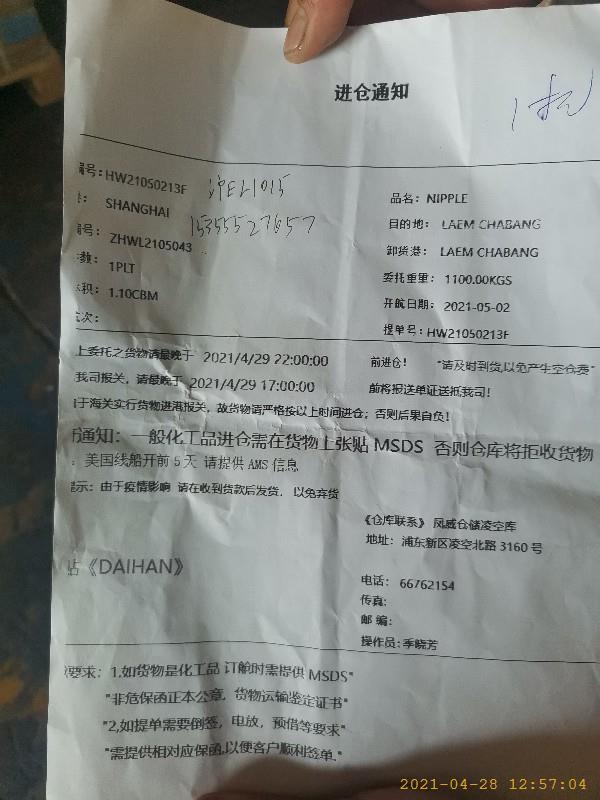 进仓通知
编号: HW21050213F 沪EL1015
品名: NIPPLE
港: SHANGHAI 15355527657
目的地: LAEM CHABANG
编号: ZHWL2105043
卸货港: LAEM CHABANG
件数: 1PLT
委托重里: 1100.00KGS
体积: 1.10CBM
开航日期: 2021-05-02
航次:
提单号: HW21050213F
上委托之货物请最晚于 2021/4/29 22:00:00 前进仓! "请及时到货,以免产生空仓费"
我司报关, 请最晚于 2021/4/29 17:00:00 前将报送单证送抵我司!
于海关实行货物进港报关, 故货物请严格按以上时间进仓; 否则后果自负!
通知: 一般化工品进仓需在货物上张贴 MSDS 否则仓库将拒收货物
: 美国线船开前 5 天 请提供 AMS 信息
提示: 由于疫情影响 请在收到货款后发货, 以免弃货
《仓库联系》 凤威仓储凌空库
地址: 浦东新区凌空北路 3160 号
贴《DAIHAN》
电话: 66762154
传真:
邮 编:
操作员: 季晓芳
要求: 1.如货物是化工品 订舱时需提供 MSDS"
"非危保函正本公章, 货物运输鉴定证书"
"2,如提单需要倒签, 电放, 预借等要求"
"需提供相对应保函,以便客户顺利签单."
2021-04-28 12:57:04